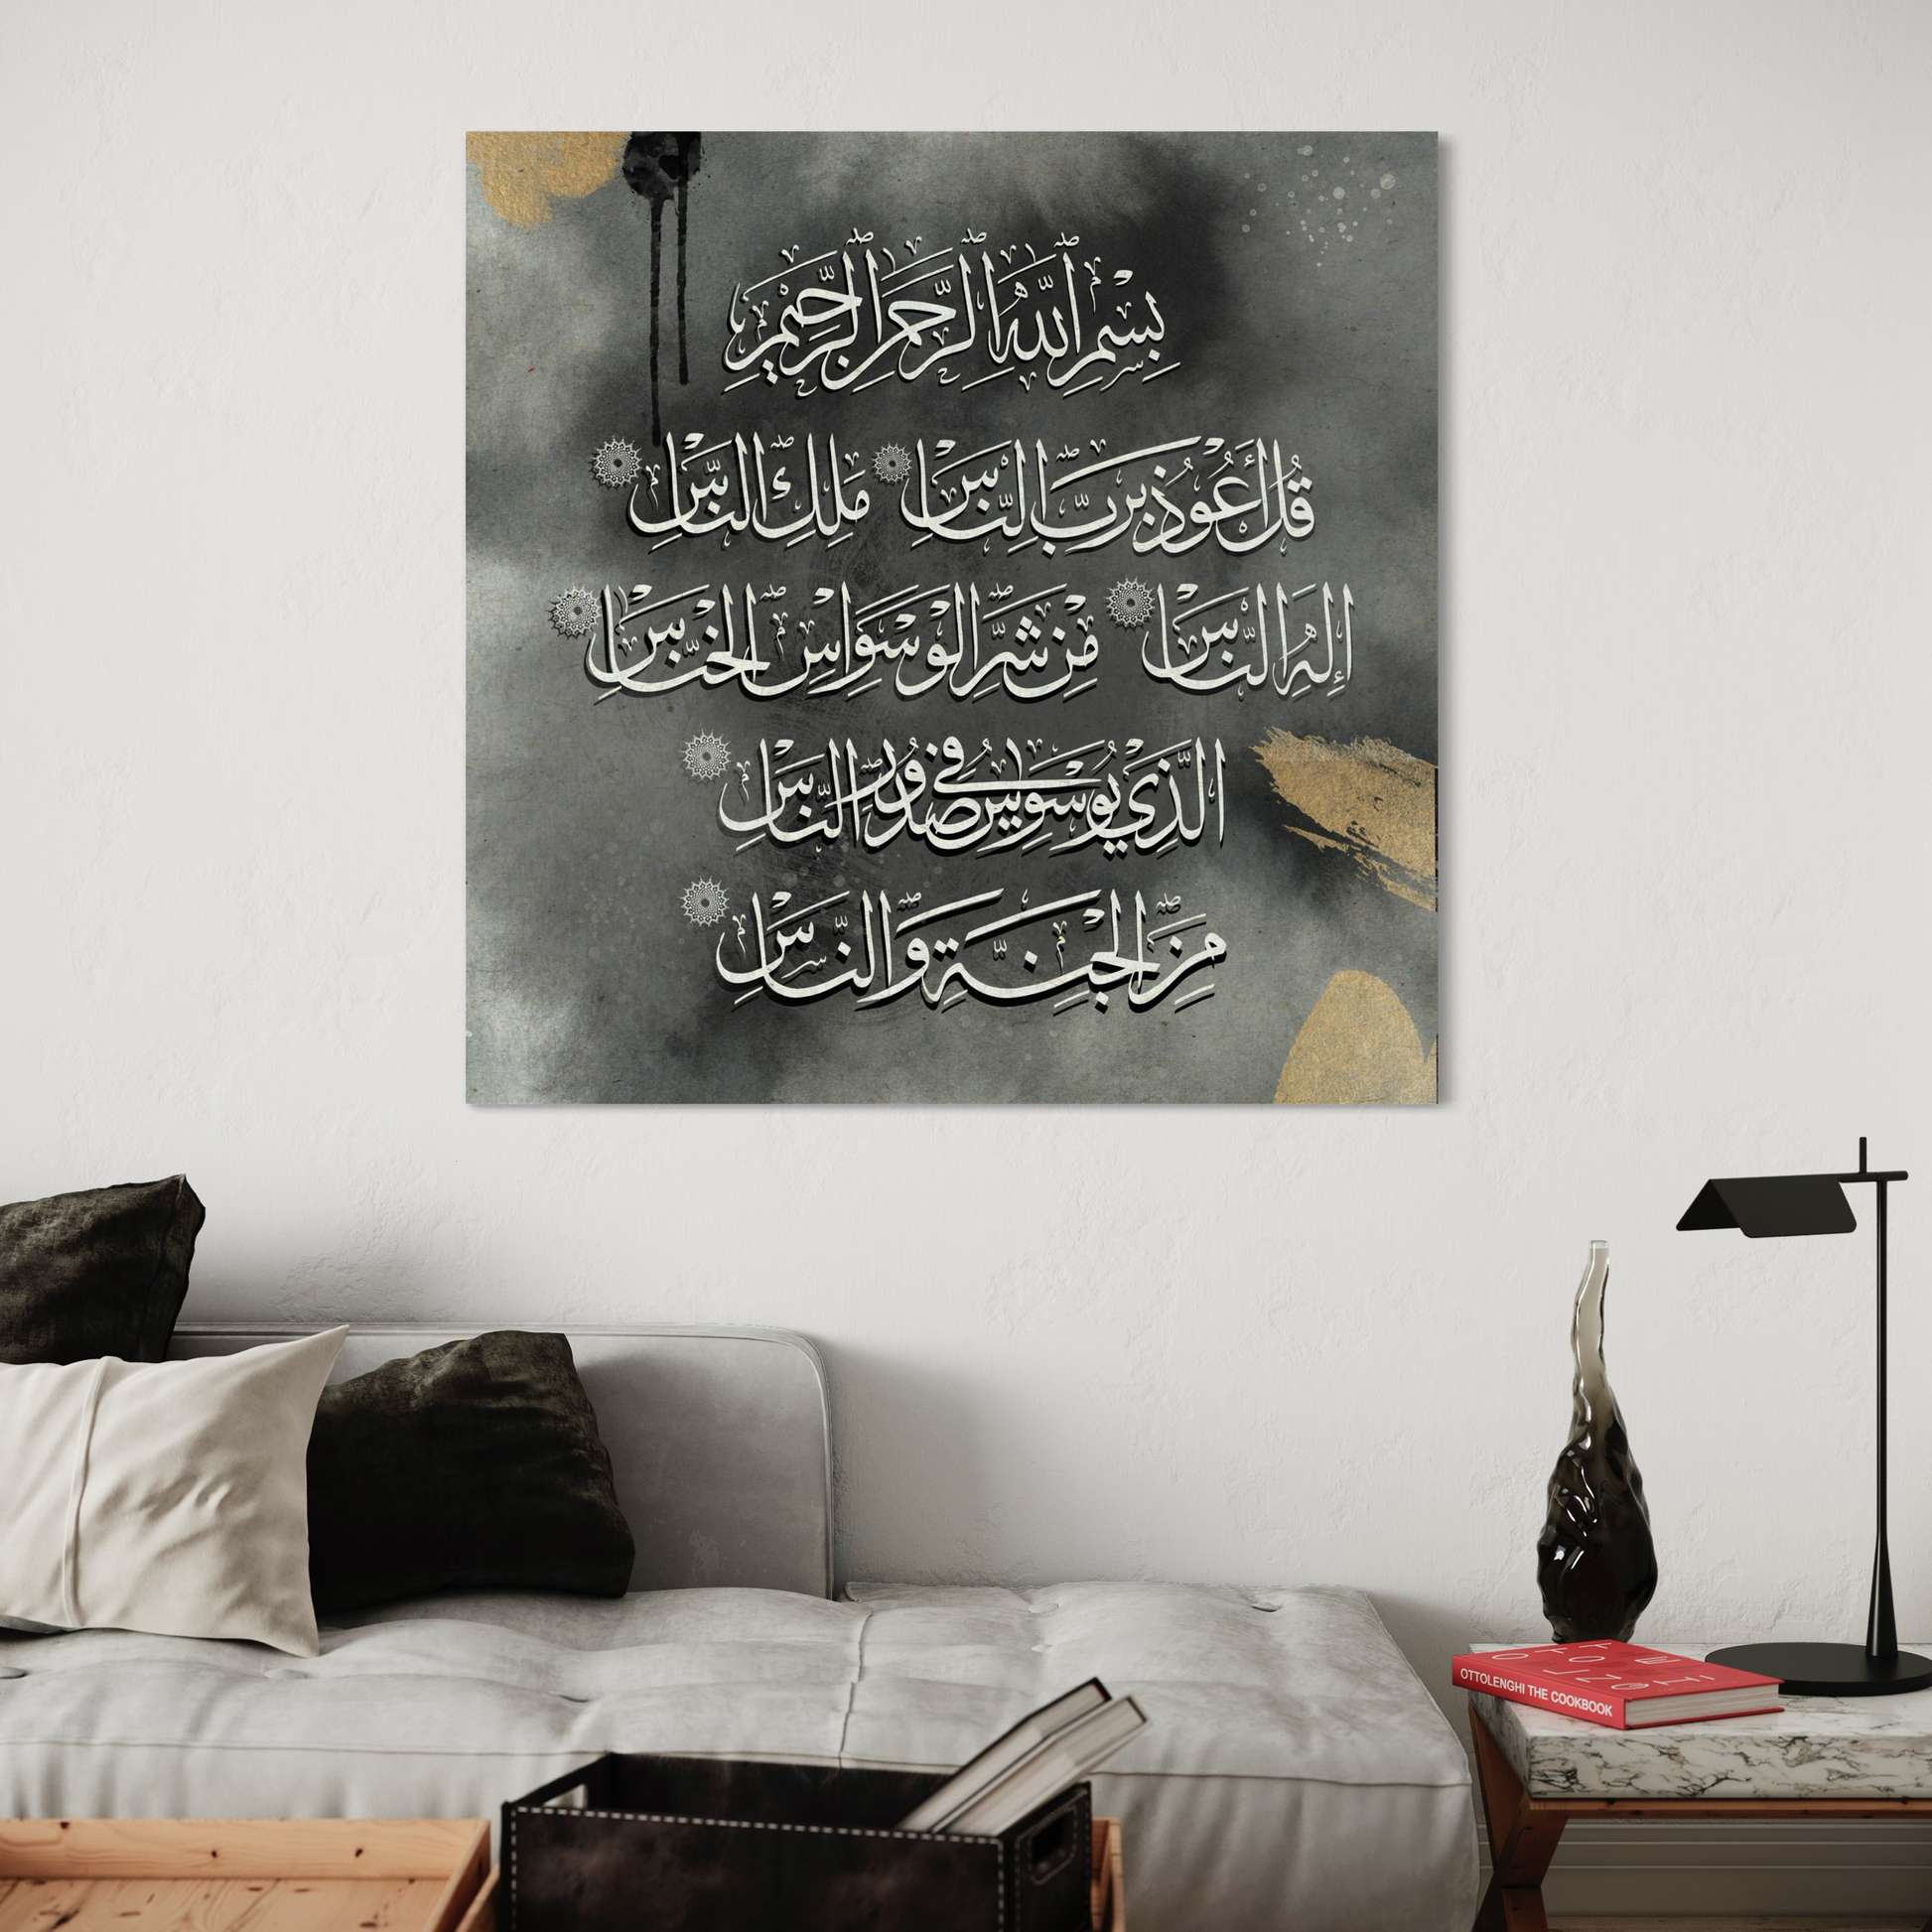 بِسْمِ ٱللَّهِ ٱلرَّحْمَٰنِ ٱلرَّحِيمِ
قُلْ أَعُوذُ بِرَبِّ ٱلنَّاسِ مَلِكِ ٱلنَّاسِ
إِلَٰهِ ٱلنَّاسِ مِنْ شَرِّ ٱلْوَسْوَاسِ ٱلْخَنَّاسِ
الَّذِي يُوَسْوِسُ فِي صُدُورِ ٱلنَّاسِ
مِنَ ٱلْجِنَّةِ وَالنَّاسِ
OTTOLENGHI THE COOKBOOK